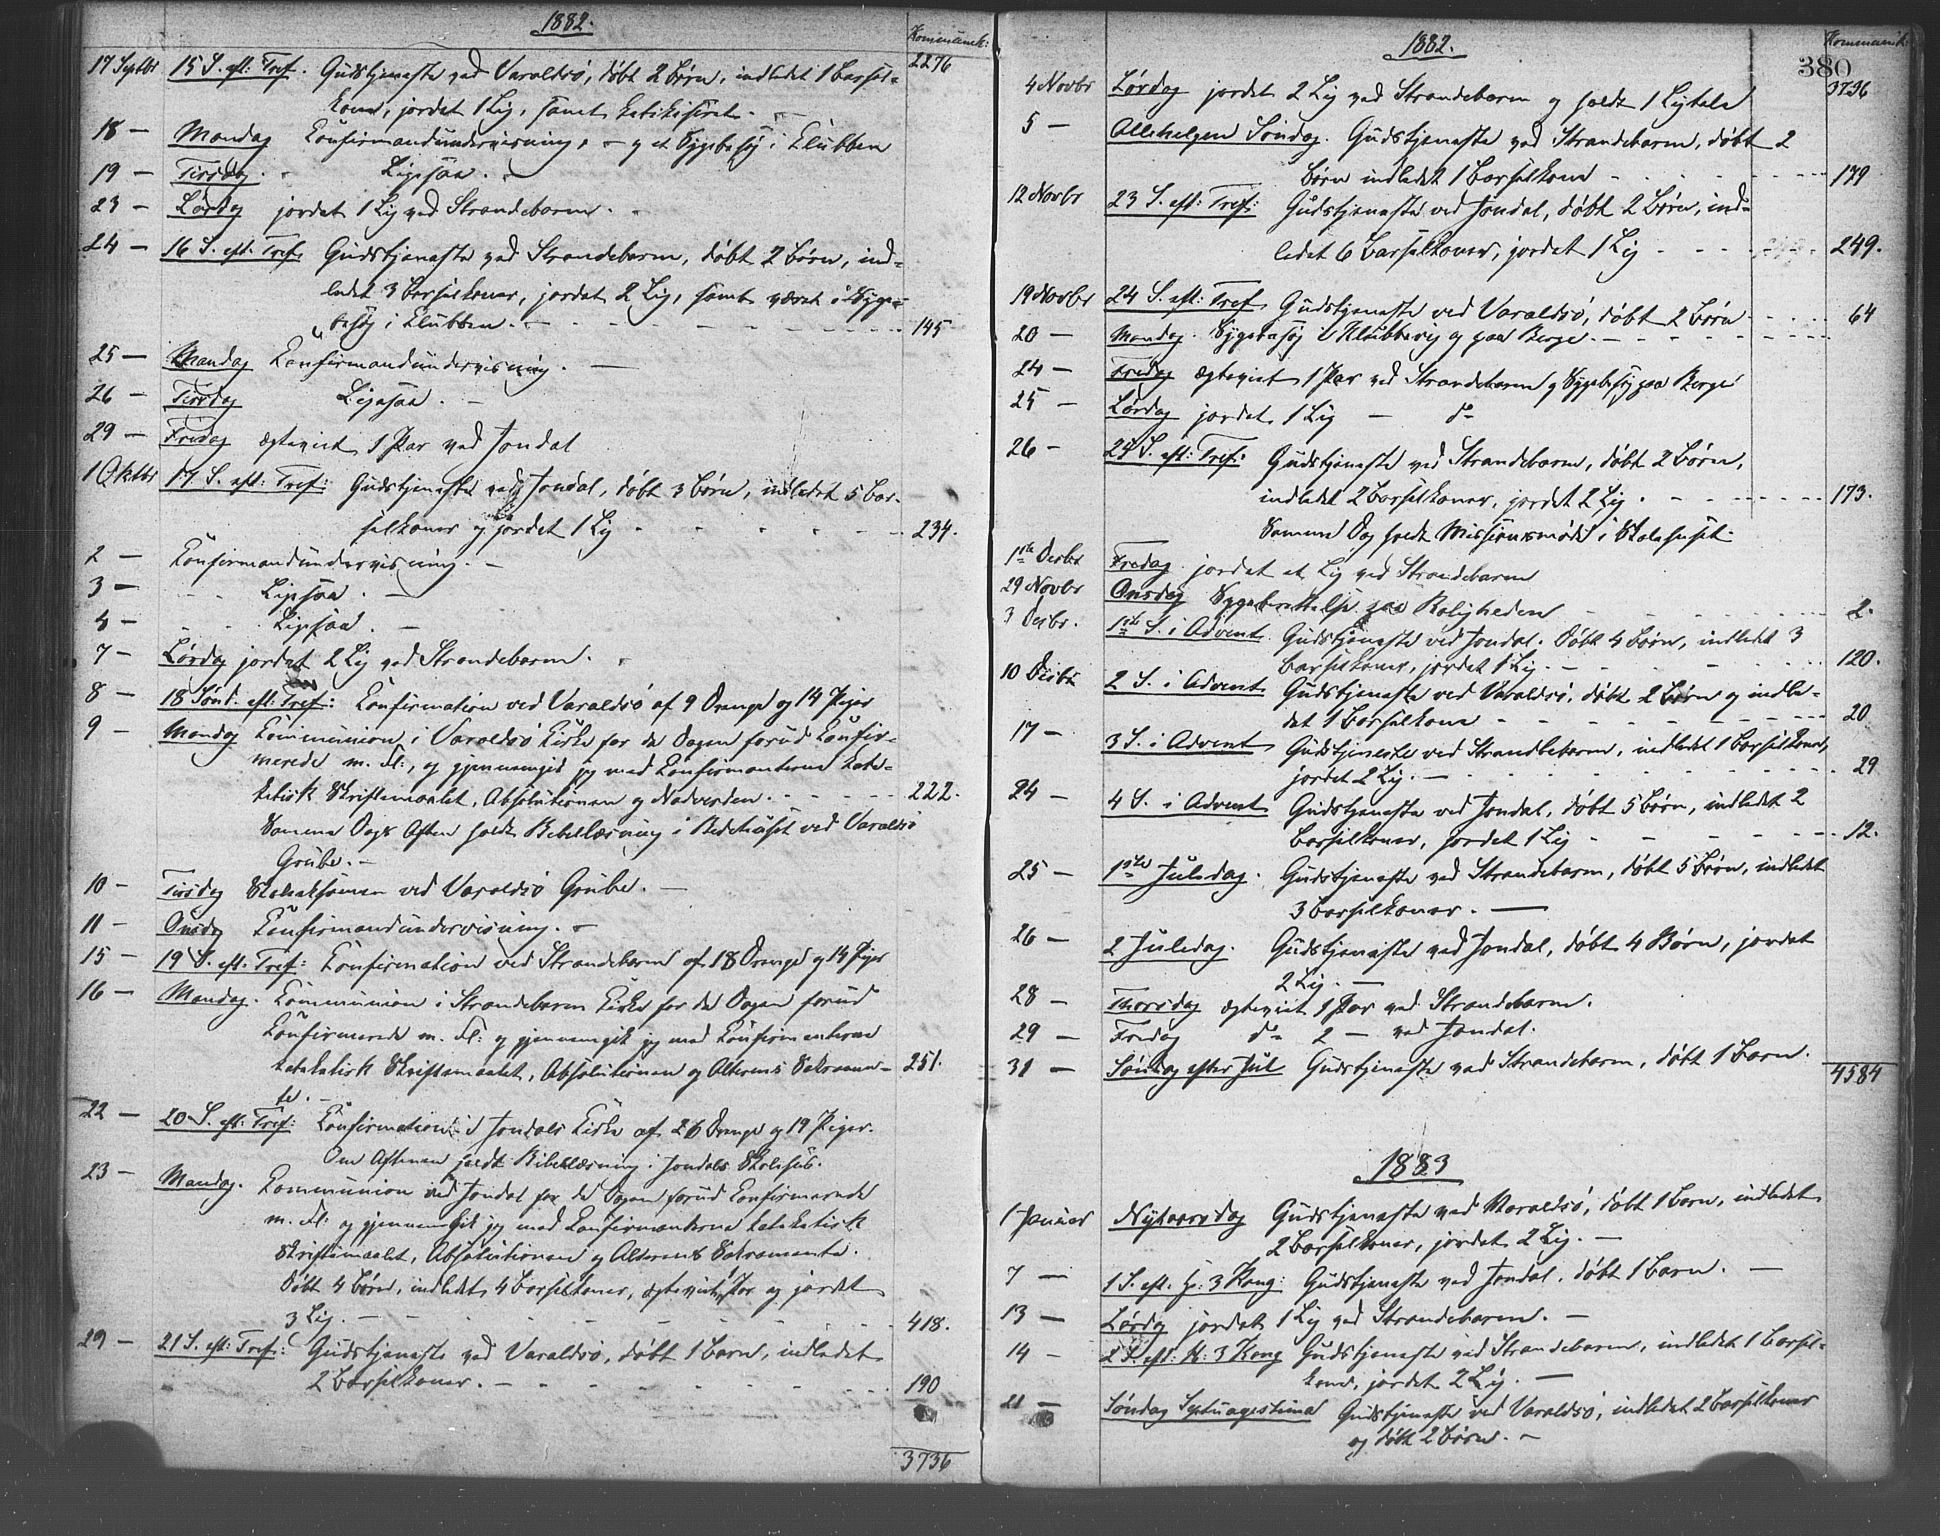 1882.
Kommunik:
17 Septbr 15 S. eft: Tref. Gudstjeneste ved Varaldsö, döbt 2 Börn, indledet 1 Barsel-
2276
kone, jordet 1 Lig, samt katekiseret.
18 — Mandag Konfirmandundervisning, — og et Sygebesög i Klubben
19 — Tirsdag. Ligesaa.
23 — Lördag jordet 1 Lig ved Strandebarm.
24 — 16 S. eft: Tref. Gudstjeneste ved Strandebarm, döbt 2 Börn, ind-
ledet 3 Barselkoner, jordet 2 Lig, samt været i Syge-
besög i Klubben. — 145
25 — Mandag Konfirmandundervisning. —
26 — Tirsdag Ligesaa. —
29 — Fredag ægteviet 1 Par ved Jondal
1 Oktbr 17 S. eft: Tref: Gudstjeneste ved Jondal, döbt 3 Börn, indledet 5 Bar-
selkoner og jordet 1 Lig 234.
2 — Konfirmandundervisning. —
3 — Ligesaa. —
4 — Ligesaa. —
7 — Lördag jordet 2 Lig ved Strandebarm.
8 — 18 Sönd. eft: Tref: Konfirmation ved Varaldsö af 9 Drenge og 14 Piger
9 — Mandag Kommunion i Varaldsö Kirke for de Dagen forud Konfir-
merede m. Fl:, og gjennemgik jeg med Konfirmanterne kate-
ketisk Skriftemaalet, Absolutionen og Nadverden. 222.
Samme Dags Aften holdt Bibellæsning i Bedehuset ved Varaldsö
Grube. —
10 — Tirsdag Skoleeksamen ved Varaldsö Grube. —
11 — Onsdag Konfirmandundervisning. —
15 — 19 S. eft: Tref: Konfirmation ved Strandebarm af 18 Drenge og 14 Piger
16 — Mandag. Kommunion i Strandebarm Kirke for de Dagen forud
Konfirmerede m. Fl: og gjennemgik jeg med Konfirmanterne
kateketisk Skriftemaalet, Absolutionen og Alterens Sakramen- 251.
te. —
22 — 20 S. eft: Tref: Konfirmation i Jondals Kirke af 26 Drenge og 19 Piger.
Om Aftenen holdt Bibellæsning i Jondals Skolehus.
23 — Mandag. Kommunion ved Jondal for de Dagen forud Konfirmerede
m. Fl: og gjennemgik jeg med Konfirmanterne kateketisk
Skriftemaalet, Absolutionen og Alterens Sakramente.
Döbt 4 Börn, indledet 4 Barselkoner, ægteviet 1 Par og jordet
3 Lig. — 418.
29 — 21 S. eft: Tref: Gudstjeneste ved Varaldsö, döbt 1 Barn, indledet
2 Barselkoner. — 190
3736
1882.
Kommunik:
380
4 Novbr Lördag jordet 2 Lig ved Strandebarm og holdt 1 Ligtale
3736
5 — Allehelgen Söndag. Gudstjeneste ved Strandebarm, döbt 2
Börn indledet 1 Barselkone 179
12 Novbr 23 S. eft: Tref: Gudstjeneste ved Jondal, döbt 2 Börn, ind-
ledet 6 Barselkoner, jordet 1 Lig 249.
19 Novbr 24 S. eft: Tref. Gudstjeneste ved Varaldsö, döbt 2 Börn 64
20 — Mandag. Sygebesög i Klubbevig og paa Berge. —
24 — Fredag ægteviet 1 Par ved Strandebarm og Sygebesög paa Berge
25 — Lördag jordet 1 Lig — do
26 — 24 S. eft: Tref: Gudstjeneste ved Strandebarm, döbt 2 Börn,
indledet 2 Barselkoner, jordet 2 Lig. 173.
Samme Dag holdt Missionsmöde i Skolehuset.
1ste Desbr Fredag jordet et Lig ved Strandebarm
29 Novbr Onsdag Sygeberettelse paa Roligheden 2.
3 Desbr. 1ste S. i Advent. Gudstjeneste ved Jondal. Döbt 4 Börn, indledet 3
Barselkoner, jordet 1 Lig. — 120.
10 Desbr 2 S. i Advent Gudstjeneste ved Varaldsö, döbt 2 Börn og indle-
det 1 Barselkone 20
17 — 3 S. i Advent Gudstjeneste ved Strandebarm, indledet 1 Barselkone,
jordet 2 Lig. — 29
24 — 4 S. i Advent Gudstjeneste ved Jondal, döbt 5 Börn, indledet 2
Barselkoner, jordet 1 Lig 12.
25 — 1ste Juledag. Gudstjeneste ved Strandebarm, döbt 5 Börn, indledet
3 Barselkoner. —
26 — 2 Juledag. Gudstjeneste ved Jondal, döbt 4 Börn, jordet
2 Lig. —
28 — Thorsdag ægteviet 1 Par ved Strandebarm.
29 — Fredag do 2 — ved Jondal.
31 — Söndag efter Jul Gudstjeneste ved Strandebarm, döbt 1 Barn.
4584
1883
1 Januar Nytaarsdag Gudstjeneste ved Varaldsö, döbt 1 Barn, indledet
2 Barselkoner, jordet 2 Lig. —
7 — 1 S. eft. H: 3 Kong: Gudstjeneste ved Jondal. döbt 1 Barn. —
13 — Lördag jordet 1 Lig ved Strandebarm. —
14 — 2 S. eft: H: 3 Kong Gudstjeneste ved Strandebarm, indledet 1 Barsel-
kone, jordet 2 Lig. —
21 — Söndag Septuagesima Gudstjeneste ved Varaldsö, indledet 2 Barselkoner
og döbt 2 Börn. —